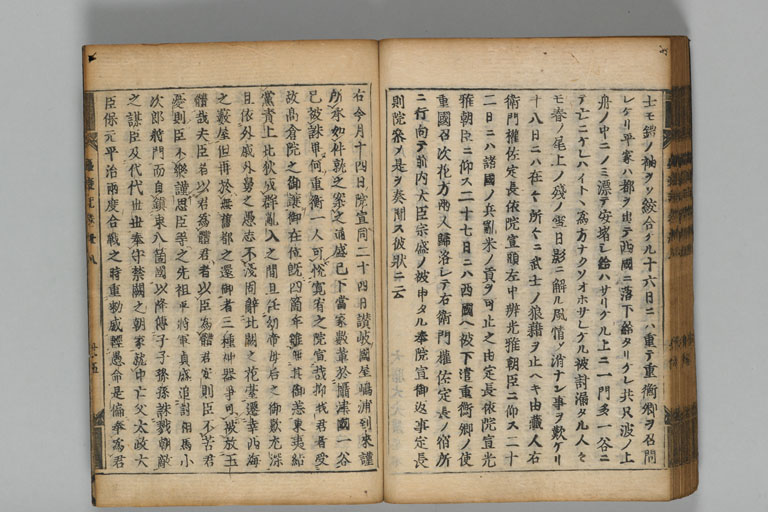 士モ鎧ノ袖ヲソ絞合ケル十六日ニハ重テ重衡卿ヲ召問
レケリ平家ハ都ヲ出テ西國ニ落下給タリケレ共只波ノ上
舟ノ中ニノミ漂テ安堵シ給ハサリケル上ニ一門多一谷ニ
テ亡ニケレハイト丶為方ナクソオホサレケル被討漏タル人々
モ春ノ尾上ノ殘ノ雪日影ニ解ル風情ノ消ナン事ヲ歎ケリ
十八日ニハ在々所々ニ武士ノ狼藉ヲ止ヘキ由藏人右
衛門權佐定長依院宣頭左中辨光雅朝臣ニ仰ス二十
二日ニハ諸國ノ兵亂米ノ責ヲ可止之由定長依院宣光
雅朝臣ニ仰ス二十七日ニハ西國ヘ被下遣重衡卿ノ使
重國召次花方兩人歸洛シテ右衛門權佐定長ノ宿所
ニ行向テ前内大臣宗盛ノ被申タル奉院宣御返事定長
則院參メ是ヲ奏聞ス彼狀ニ云
右今月十四日院宣同二十四日讃岐國屋嶋浦到來謹
所承如件就之案之通盛已下當家數輩於攝津國一谷
已被誅畢何重衡一人可悅寛宥之院宣哉抑我君者受
故高倉院之御讓御在位既四箇年雖無其御恙東夷結
黨責上北狄成群亂入之間且任幼帝母后之御歎尤深
且依外戚外舅之愚志不淺固辭北闕之花臺遷幸西海
之藪屋但再於無舊都之還御者三種神器爭可被放玉
體哉夫臣者以君為體君者以臣為體君安則臣不苦君
憂則臣不樂謹思臣等之先祖平將軍貞盛追討相馬小
次郎將門而自鎮東八箇國以降傳子々孫々誅戮朝敵
之謀臣及代代世世奉守禁闕之朝家就中亡父太政大
臣保元平治兩度合戰之時重勅威輕愚命是偏奉為君